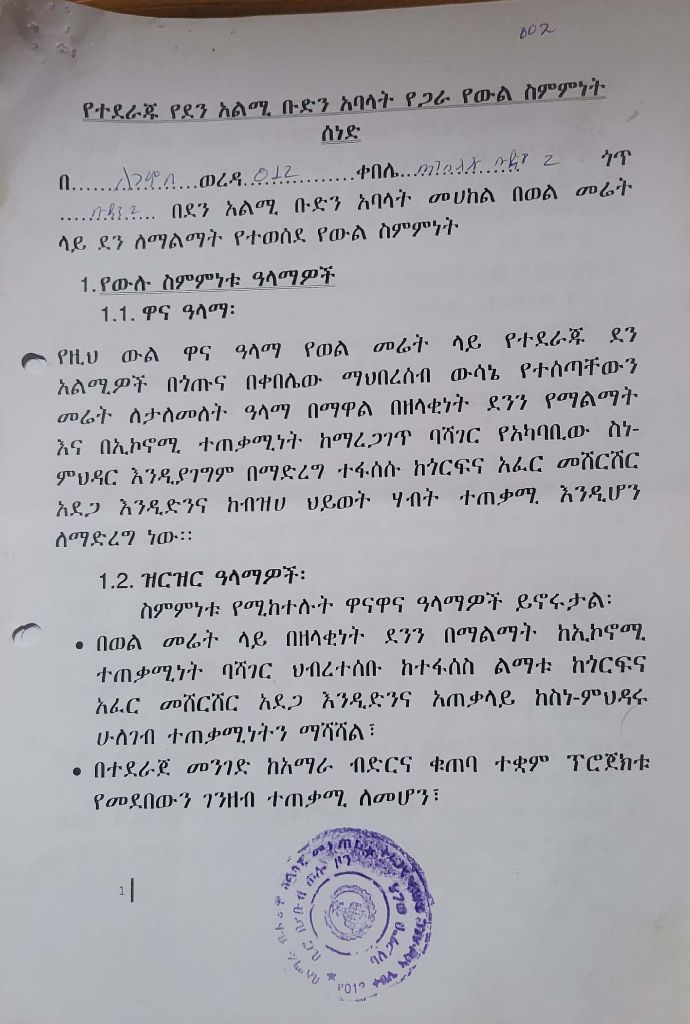 002
የተደራጁ የደን አልሚ ቡድን አባላት የጋራ የውል ስምምነት
ሰነድ
በ...............ወረዳ 012 ................ቀበሌ.................. ጎጥ
............... በደን አልሚ ቡድን አባላት መሀከል በወል መሬት
ላይ ደን ለማልማት የተወሰደ የውል ስምምነት
1. የውሉ ስምምነቱ ዓላማዎች
1.1. ዋና ዓላማ፡
የዚህ ውል ዋና ዓላማ የወል መሬት ላይ የተደራጁ ደን
አልሚዎች በጎጡና በቀበሌው ማህበረሰብ ውሳኔ የተሰጣቸውን
መሬት ለታለመለት ዓላማ በማዋል በዘላቂነት ደንን የማልማት
እና በኢኮኖሚ ተጠቃሚነት ከማረጋገጥ ባሻገር የአካባቢው ስነ-
ምህዳር እንዲያገግም በማድረግ ተፋሰሱ ከጎርፍና አፈር መሸርሸር
አደጋ እንዲድንና ከብዝሀ ህይወት ሃብት ተጠቃሚ እንዲሆን
ለማድረግ ነው፡፡
1.2. ዝርዝር ዓላማዎች፡
ስምምነቱ የሚከተሉት ዋናዋና ዓላማዎች ይኖሩታል፡
• በወል መሬት ላይ በዘላቂነት ደንን በማልማት ከኢኮኖሚ
ተጠቃሚነት ባሻገር ህብረተሰቡ ከተፋሰስ ልማቱ ከጎርፍና
አፈር መሸርሸር አደጋ እንዲድንና አጠቃላይ ከስነ-ምህዳሩ
ሁለገብ ተጠቃሚነትን ማሻሻል፣
• በተደራጀ መንገድ ከአማራ ብድርና ቁጠባ ተቋም ፕሮጀክቱ
የመደበውን ገንዘብ ተጠቃሚ ለመሆን፣
1